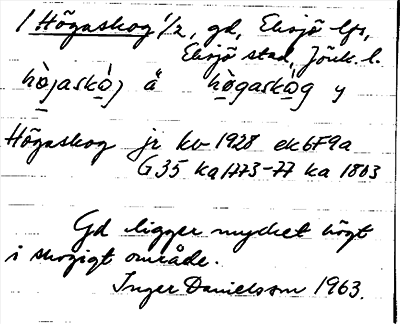 / Högaskog 1/2, gd, Eksjö lfs,
Eksjö stad, Jönk. l.
hò̱jaskò̱j ä hò̱gaskò̱g y
Högaskog jr kv 1928 ek 6F9a
G35 ka 1773-77 ka 1803
Gd ligger mycket högt
i skogigt område.
Inger Danielsson 1963.